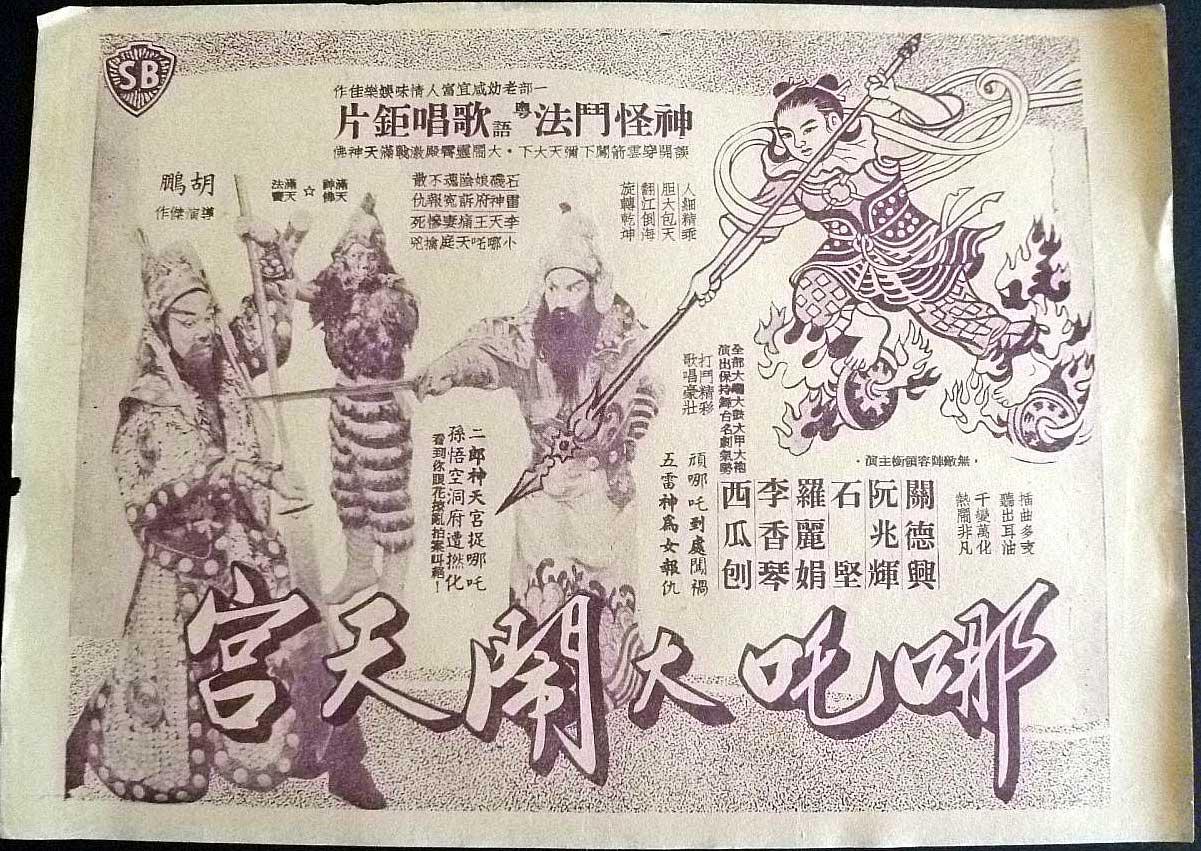 SB
一部老幼咸宜富人情味娛樂佳作
神怪鬥法粵語歌唱鉅片
誤開穿雲箭闖下彌天大下・大鬧靈霄殿激戰滿天神佛
人細精乖
胆大包天
翻江倒海
旋轉乾坤
石磯娘陰魂不散
雷神府訴冤報仇
李天王痛妻慘死
小哪吒天庭擒兇
滿天神佛☆滿天法寶
胡鵬
導演傑作
全部大鑼大鼓大甲大袍
演出保持舞台名劇氣勢
打鬥精彩
歌唱豪壯
頑哪吒到處闖禍
五雷神為女報仇
二郎神天宮捉哪吒
孫悟空洞府遭撚化
看到你眼花撩亂拍案叫絕！
・無敵陣容領銜主演・
關德興
阮兆輝
石堅
羅麗娟
李香琴
西瓜刨
插曲多支
聽出耳油
千變萬化
熱鬧非凡
哪吒大鬧天宮